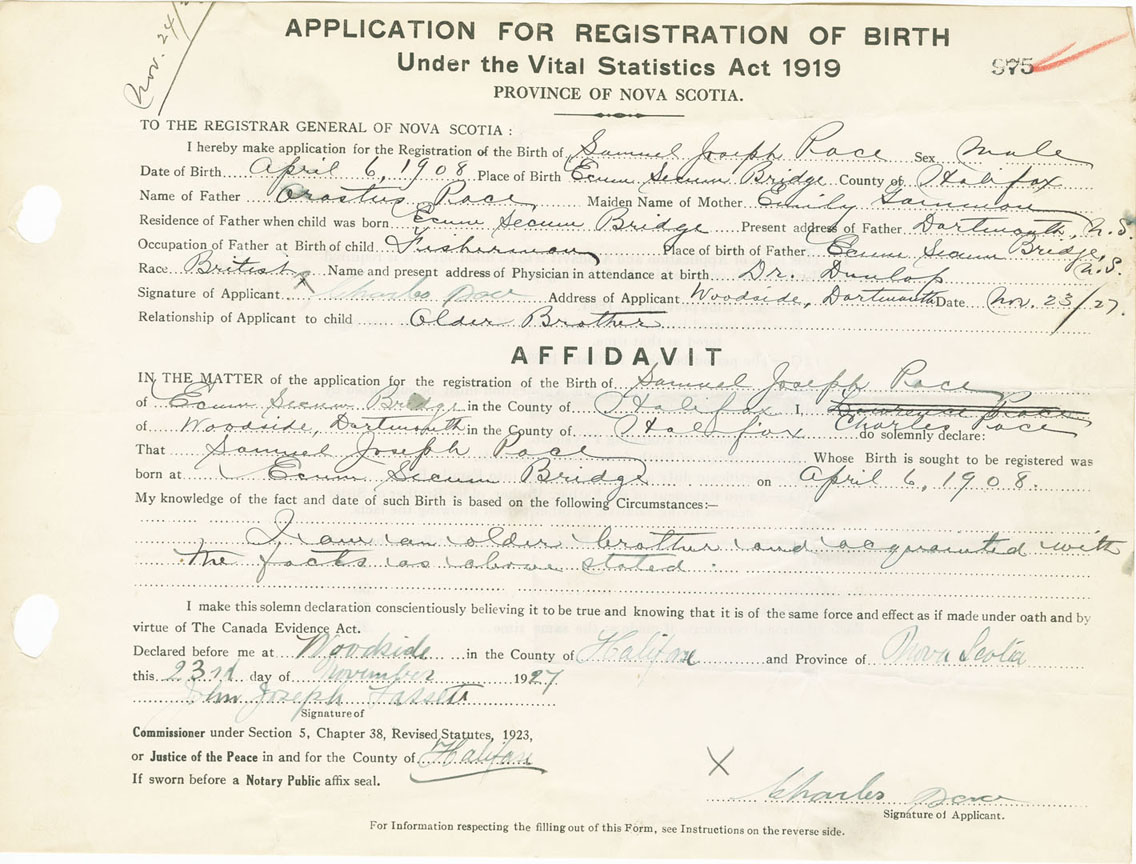 Nov. 24/
APPLICATION FOR REGISTRATION OF BIRTH
Under the Vital Statistics Act 1919
975
PROVINCE OF NOVA SCOTIA.
TO THE REGISTRAR GENERAL OF NOVA SCOTIA :
I hereby make application for the Registration of the Birth of Samuel Joseph Pace Sex Male
Date of Birth April 6, 1908 Place of Birth Ecum Secum Bridge County of Halifax
Name of Father Erastus Pace Maiden Name of Mother Emily
Residence of Father when child was born Ecum Secum Bridge Present address of Father Dartmouth, N.S.
Occupation of Father at Birth of child Fisherman Place of birth of Father Ecum Secum Bridge, N.S.
Race British Name and present address of Physician in attendance at birth Dr. Dunlop
Signature of Applicant x Charles Pace Address of Applicant Woodside, Dartmouth Date Nov. 23/27.
Relationship of Applicant to child Older Brother
AFFIDAVIT
IN THE MATTER of the application for the registration of the Birth of Samuel Joseph Pace
of Ecum Secum Bridge in the County of Halifax I, Lawrence Pace
of Woodside, Dartmouth in the County of Halifax Charles Pace do solemnly declare:
That Samuel Joseph Pace Whose Birth is sought to be registered was
born at Ecum Secum Bridge on April 6, 1908.
My knowledge of the fact and date of such Birth is based on the following Circumstances:—
I am an older brother and acquainted with
the facts as above stated.
I make this solemn declaration conscientiously believing it to be true and knowing that it is of the same force and effect as if made under oath and by
virtue of The Canada Evidence Act.
Declared before me at Woodside in the County of Halifax and Province of Nova Scotia
this 23rd day of November 1927.
John Joseph
Signature of
Commissioner under Section 5, Chapter 38, Revised Statutes, 1923,
or Justice of the Peace in and for the County of Halifax
If sworn before a Notary Public affix seal.
x Charles Pace
Signature of Applicant.
For Information respecting the filling out of this Form, see Instructions on the reverse side.